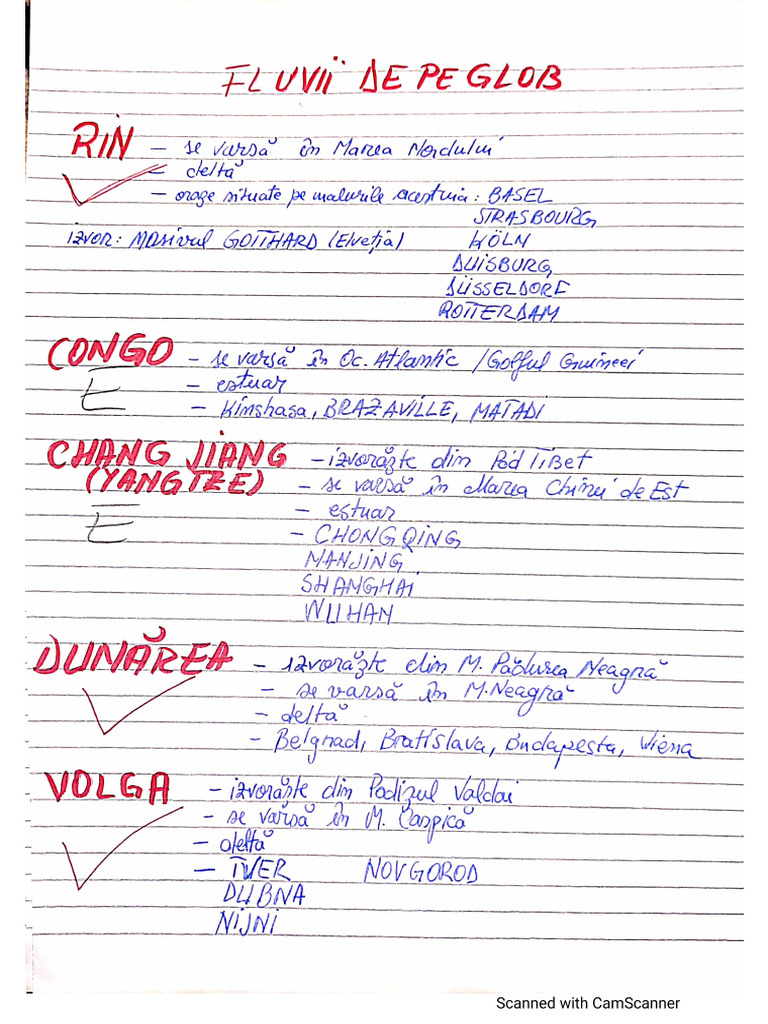 FLUVII DE PE GLOB
RIN - se varsă în Marea Nordului
- deltă
- orașe situate pe malurile acestuia: BASEL
STRASBOURG,
izvor: MASivul GOTTHARD (Elveția) KÖLN
DUISBURG,
DÜSSELDORF
ROTTERDAM
CONGO - se varsă în Oc. Atlantic / Golful Guineei
E - estuar
- Kinshasa, BRAZAVILLE, MATADI
CHANG JIANG - izvorăște din Pod Tibet
(YANGTZE) - se varsă în Marea Chinei de Est
E - estuar
- CHONGQING
NANJING
SHANGHAI
WUHAN
DUNĂREA - izvorăște din M. Pădurea Neagră
- se varsă în M. Neagră
- deltă
- Belgrad, Bratislava, Budapesta, Viena
VOLGA - izvorăște din Podișul Valdai
- se varsă în M. Caspică
- deltă
- TVER NOVGOROD
DUBNA
NIJNI
Scanned with CamScanner